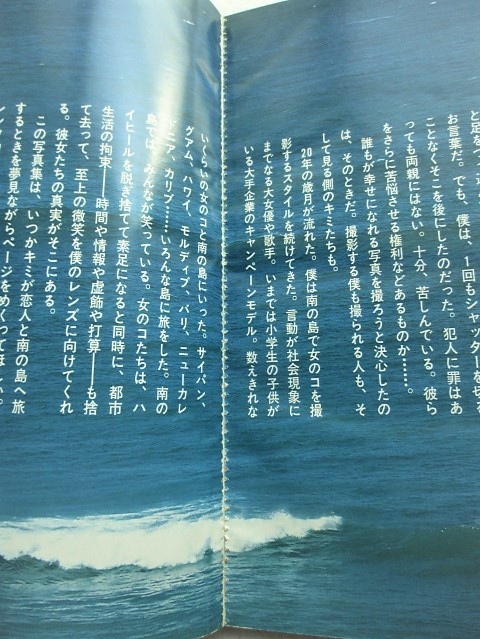 お言葉だ。でも、僕は、1回もシャッターを
ことなくそこを後にしたのだった。犯人に罪はあ
っても両親にはない。十分、苦しんでいる。彼ら
をさらに苦悩させる権利などあるものか……。
誰もが幸せになれる写真を撮ろうと決心したの
は、そのときだ。撮影する僕も撮られる人も、そ
して見る側のキミたちも。
20年の歳月が流れた。僕は南の島で女のコを撮
影するスタイルを続けてきた。言動が社会現象に
までなる大女優や歌手。いまでは小学生の子供が
いる大手企業のキャンペーンモデル。数えきれな
いくらいの女のコと南の島にいった。サイパン、
グアム、ハワイ、モルディブ、バリ、ニューカレ
ドニア、カリブ……いろんな島に旅をした。南の
島では、みんなが笑っている。女のコたちは、ハ
イヒールを脱ぎ捨てて素足になると同時に、都市
生活の拘束——時間や情報や虚飾や打算——も捨
て去って、至上の微笑を僕のレンズに向けてくれ
る。彼女たちの真実がそこにある。
この写真集は、いつかキミが恋人と南の島へ旅
するときを夢見ながらページをめくってほしい。